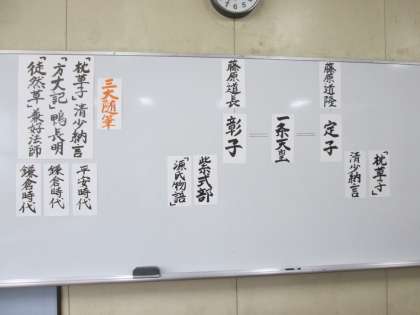 「枕草子」
清少納言
定子
藤原道隆
一条天皇
彰子
藤原道長
紫式部
「源氏物語」
三大随筆
「枕草子」清少納言
平安時代
「方丈記」鴨長明
鎌倉時代
「徒然草」兼好法師
鎌倉時代